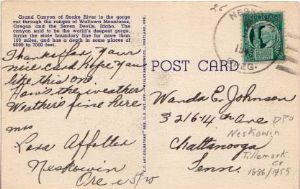 Grand Canyon of Snake River in the gorge
through the ranges of Wallowa Mountains,
Oregon and the Seven Devils, Idaho. The
canyon said to be the world's deepest gorge,
forms the state boundary line for more than
100 miles, and has a depth in some places of
6000 to 7000 feet.
Thanks for your
nice card. Hope you
like this one.
How's the weather
Weather's fine here
Mrs
Neskowin
Ore
POST CARD
NESKOWIN
OREG.
Wanda E. Johnson
3216 44th Ave
Chattanooga
Tenn
DPO
Neskowin
Tillamook
Co
1886/1955